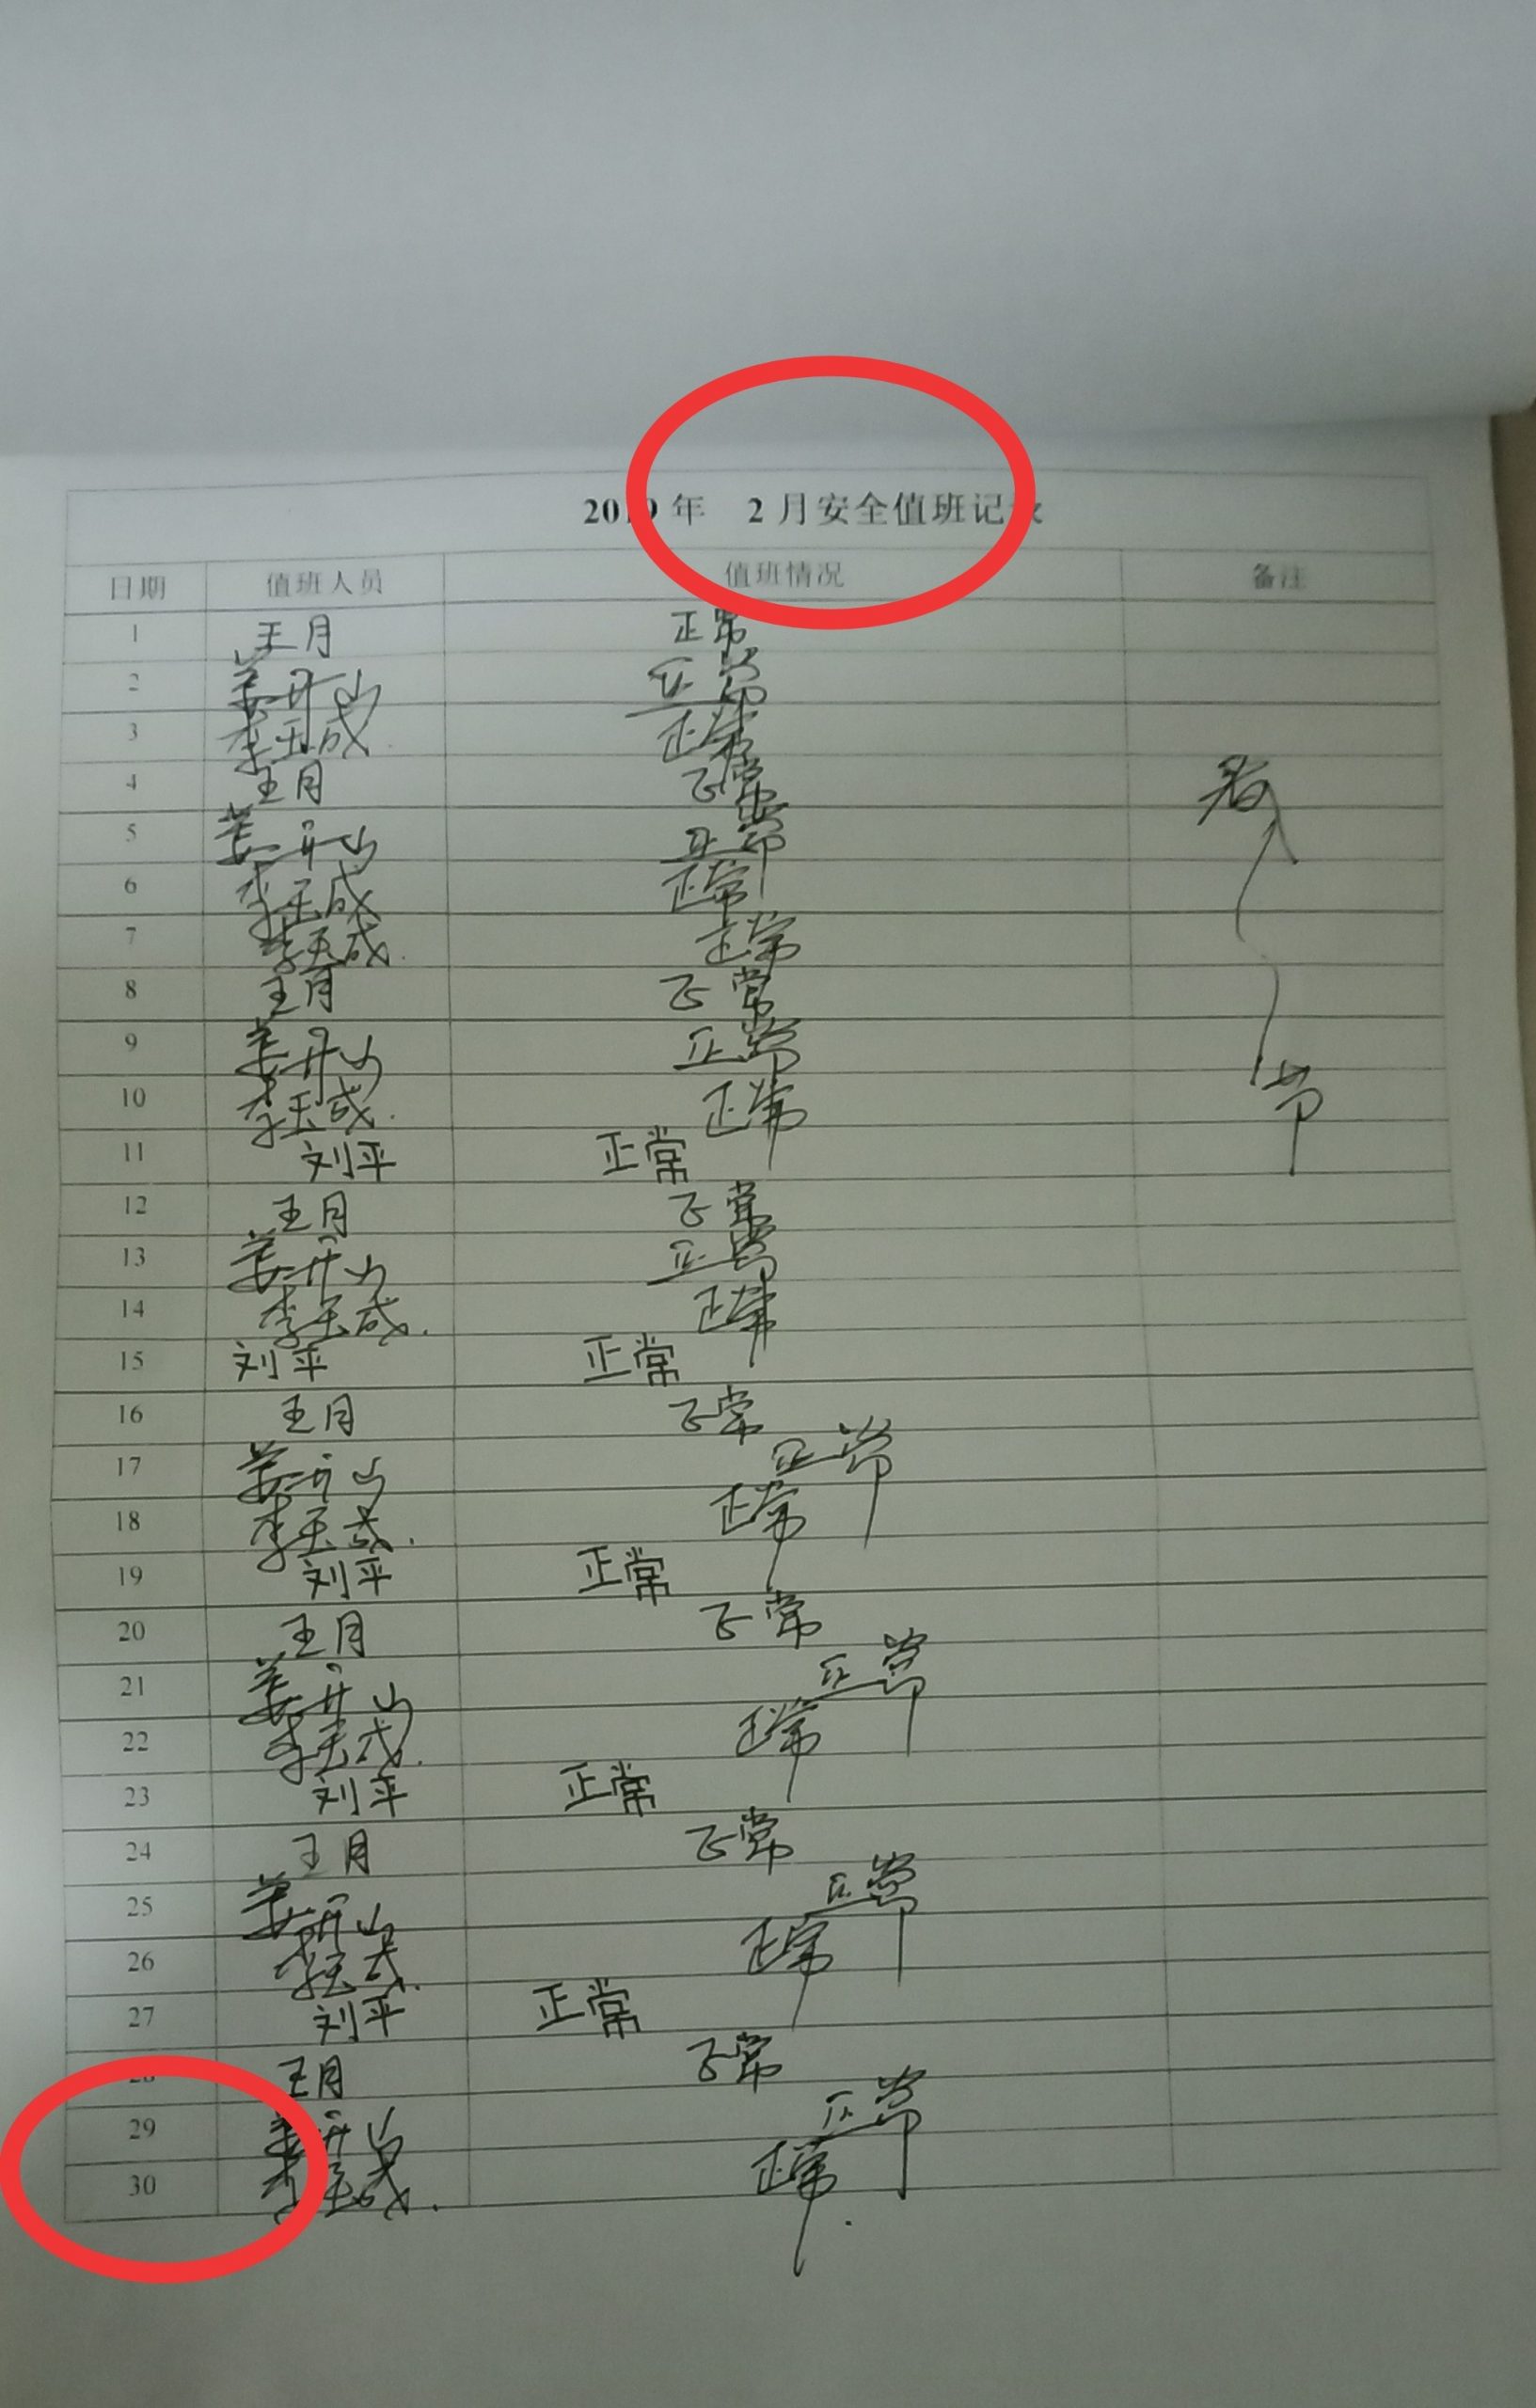 2019年 2月安全值班记录
日期 值班人员 值班情况 备注
1 王月 正常
2 姜开山 正常
3 李玉成 正常
4 王月 正常 春
5 姜开山 正常
6 李玉成 正常
7 李玉成 正常
8 王月 正常
9 姜开山 正常
10 李玉成 正常 节
11 刘平 正常
12 王月 正常
13 姜开山 正常
14 李玉成 正常
15 刘平 正常
16 王月 正常
17 姜开山 正常
18 李玉成 正常
19 刘平 正常
20 王月 正常
21 姜开山 正常
22 李玉成 正常
23 刘平 正常
24 王月 正常
25 姜开山 正常
26 李玉成 正常
27 刘平 正常
28 王月 正常
29 姜开山 正常
30 李玉成 正常